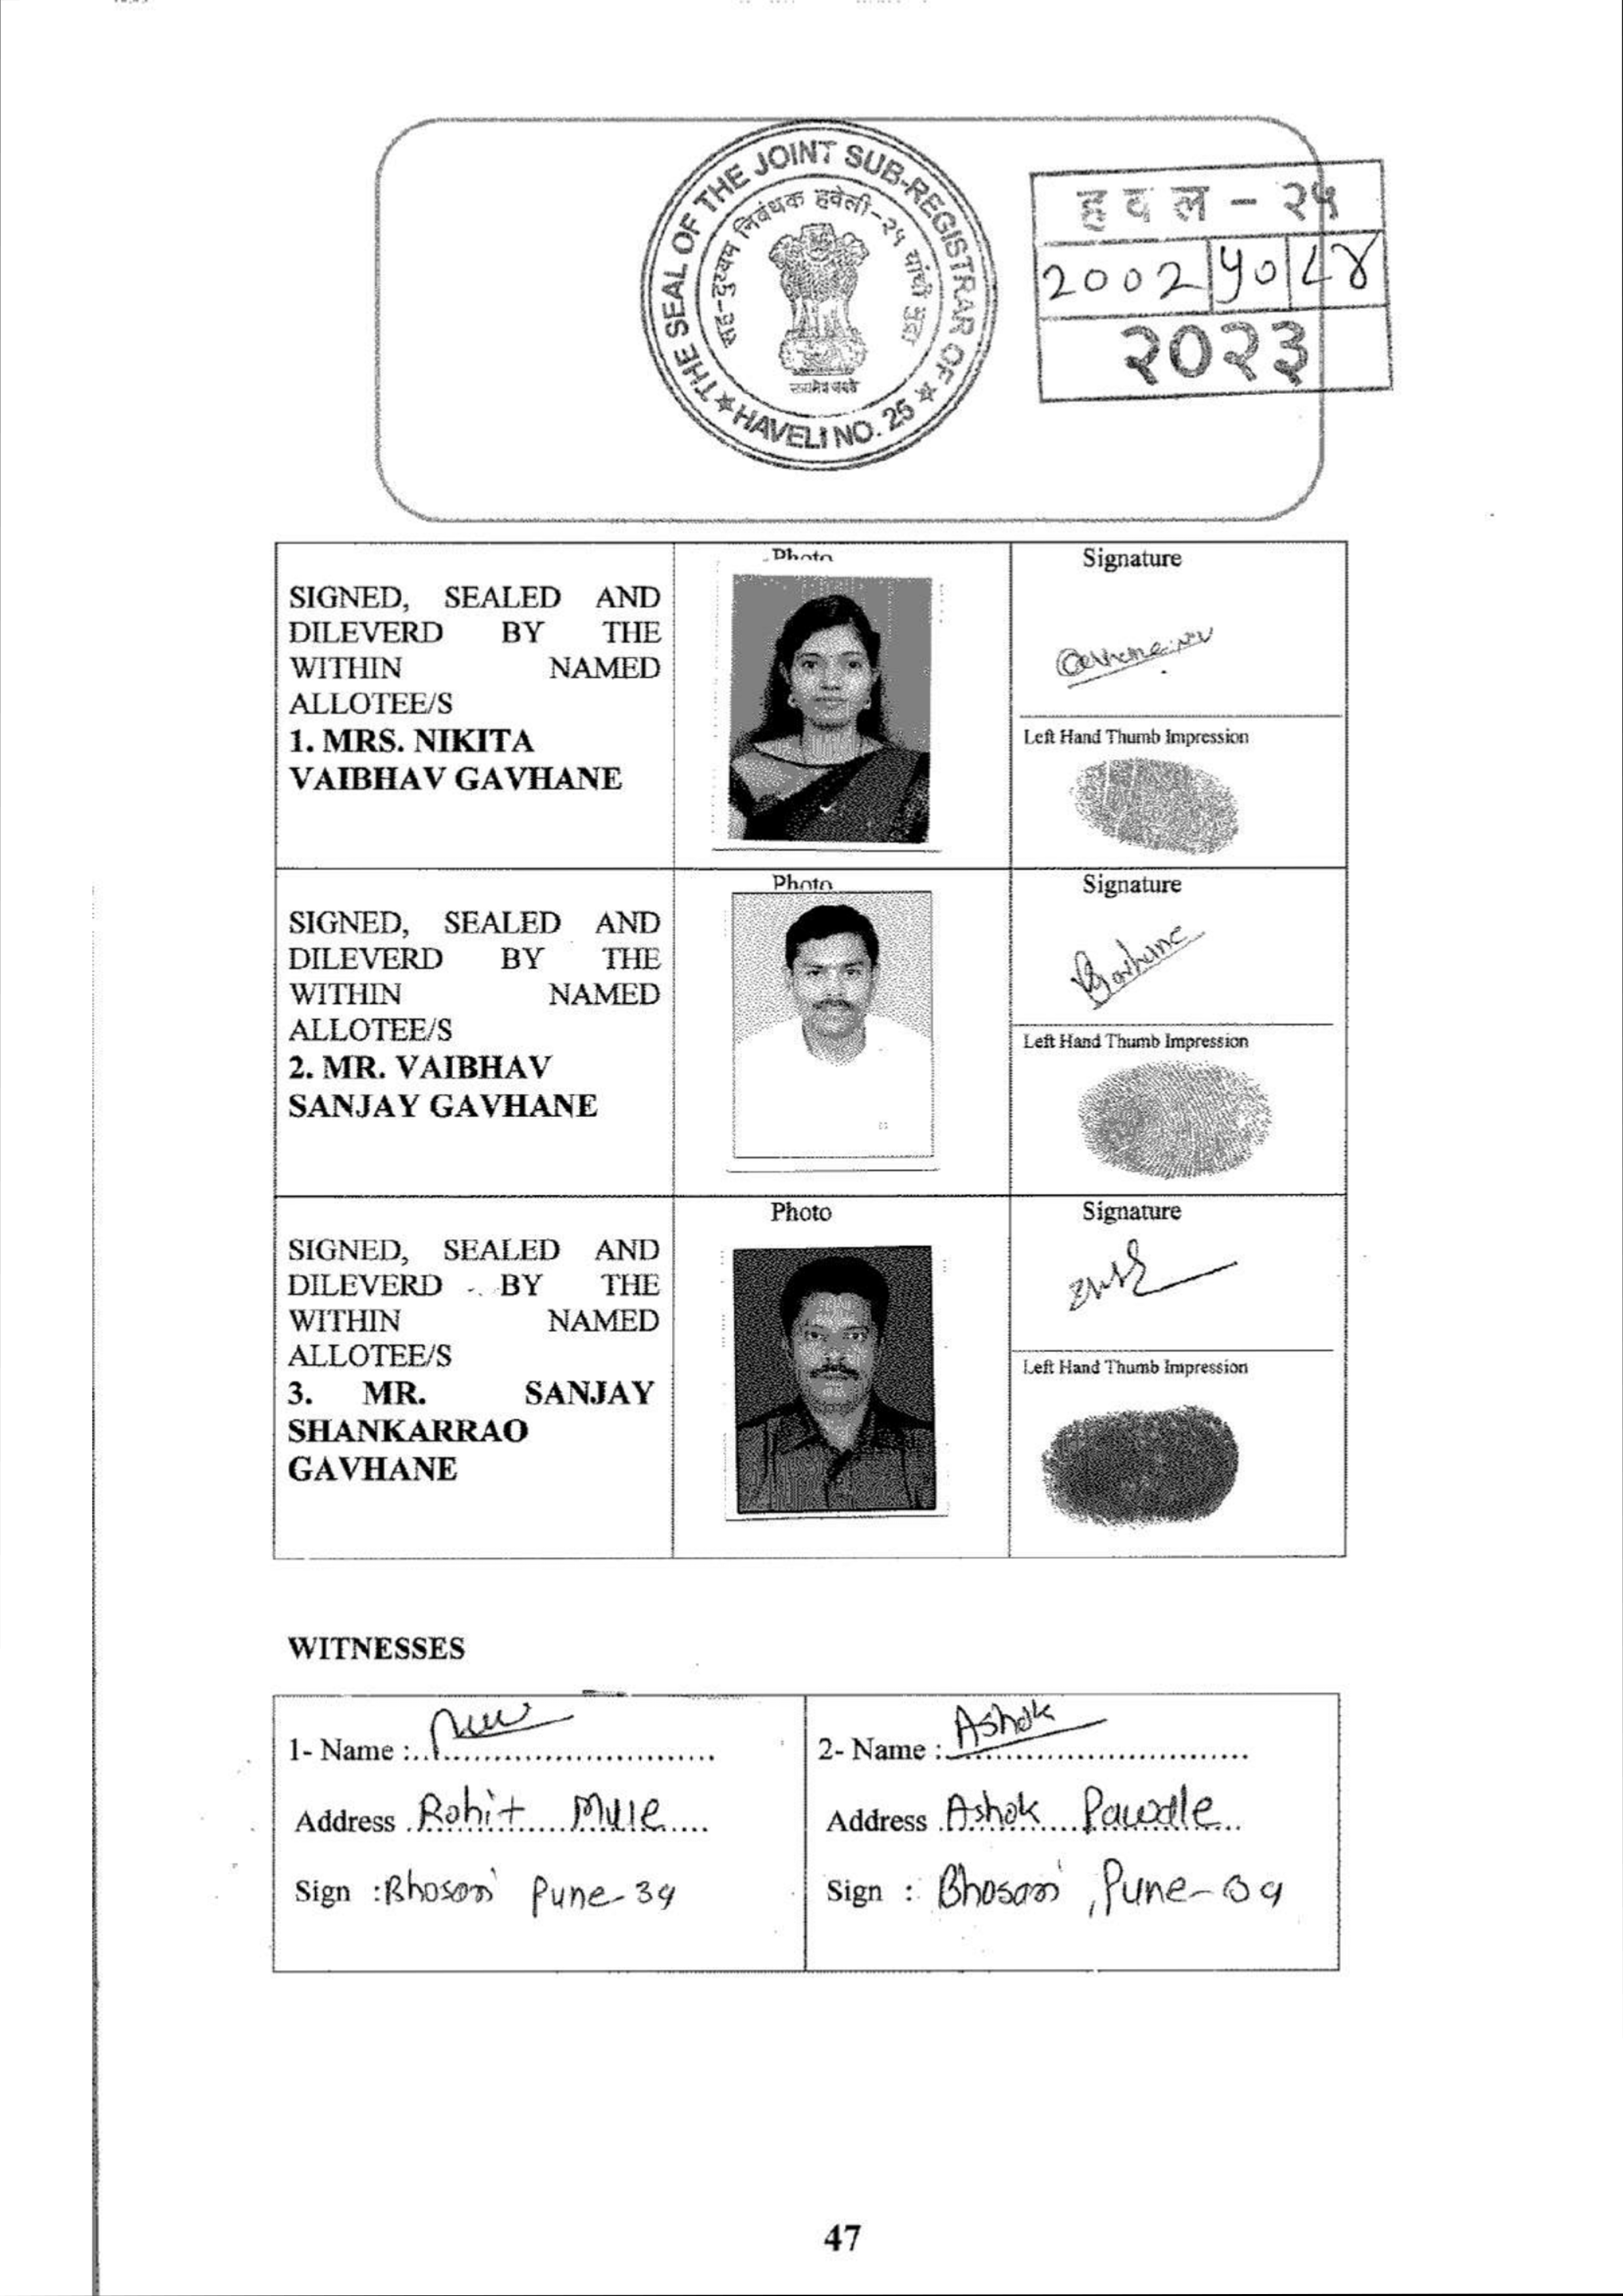 THE SEAL OF THE JOINT SUB-REGISTRAR OF
HAVELI NO. 25
सह-दुय्यम निबंधक हवेली-२५ यांची मुद्रा
सत्यमेव जयते
हवल - २५
2002 | ५० | ८४
२०२३
Photo
Signature
SIGNED, SEALED AND
DILEVERD BY THE
WITHIN NAMED
ALLOTEE/S
1. MRS. NIKITA
VAIBHAV GAVHANE
Left Hand Thumb Impression
Photo
Signature
SIGNED, SEALED AND
DILEVERD BY THE
WITHIN NAMED
ALLOTEE/S
2. MR. VAIBHAV
SANJAY GAVHANE
Vgavhane
Left Hand Thumb Impression
Photo
Signature
SIGNED, SEALED AND
DILEVERD BY THE
WITHIN NAMED
ALLOTEE/S
3. MR. SANJAY
SHANKARRAO
GAVHANE
Left Hand Thumb Impression
WITNESSES
1- Name :
Address Rohit Mule
Sign : Bhosari Pune-39
2- Name : Ashok
Address Ashok Pawdle
Sign : Bhosari, Pune-09
47